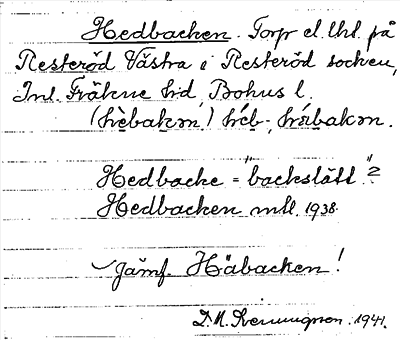 Hedbacken. Torp el. lht. på
Resteröd Västra i Resteröd socken,
Inl. Fräkne hd, Bohus l.
(hèbakən) héb-, hǽbakən.
Hedbacke = "backslätt"?
Hedbacken mtl. 1938.
Jämf. Häbacken!
D.A. 1941.